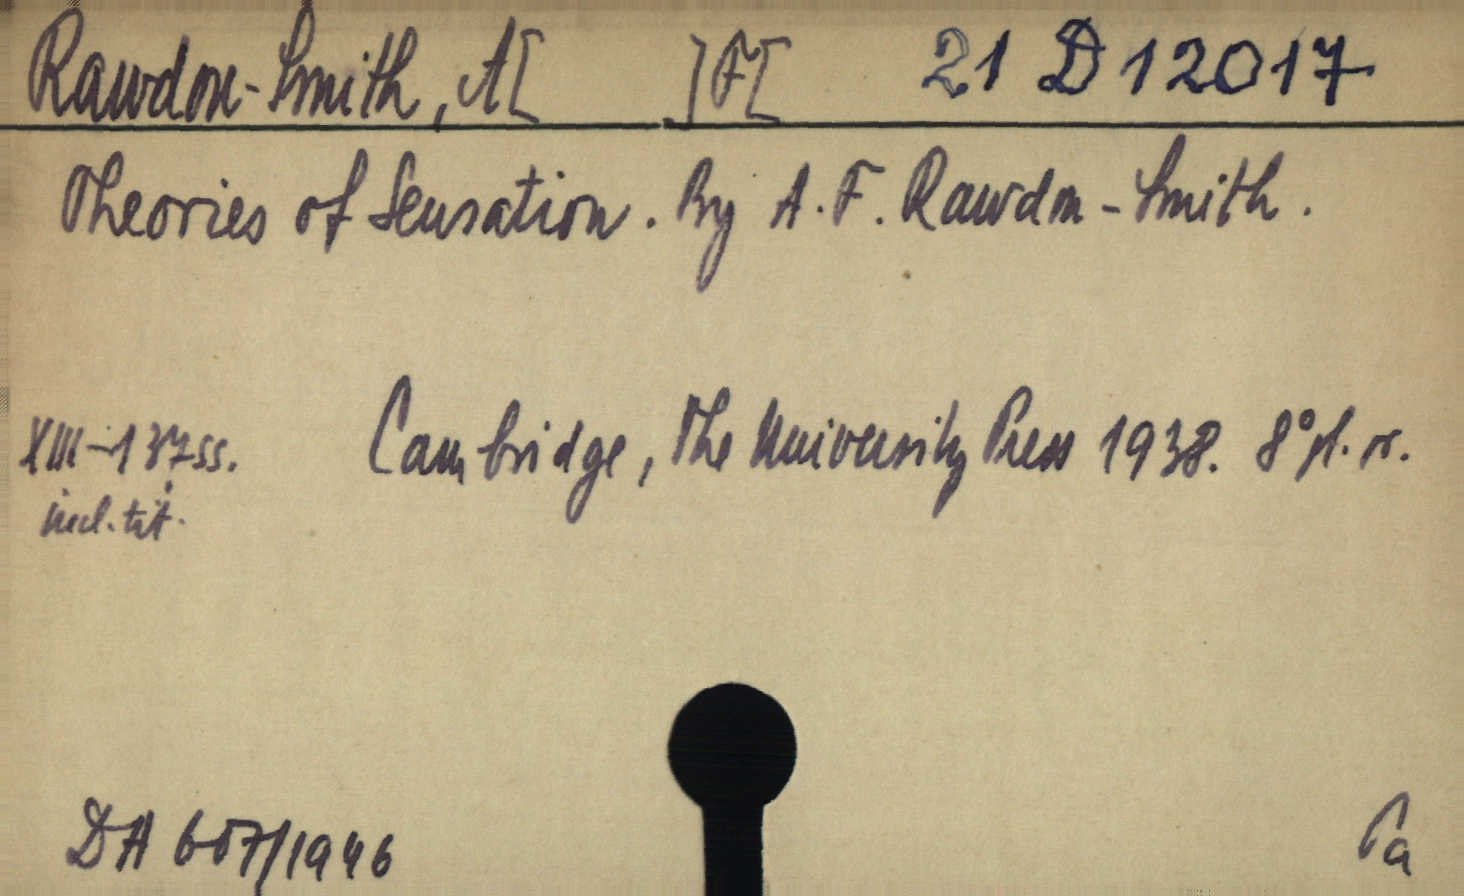 Rawdon-Smith, A[ ]F[ 21 D 12017
Theories of Sensation. By A. F. Rawdon-Smith.
XIII-137ss. Cambridge, The University Press 1938. 8° pl. rs.
incl. tit.
DA 607/1946
Ca